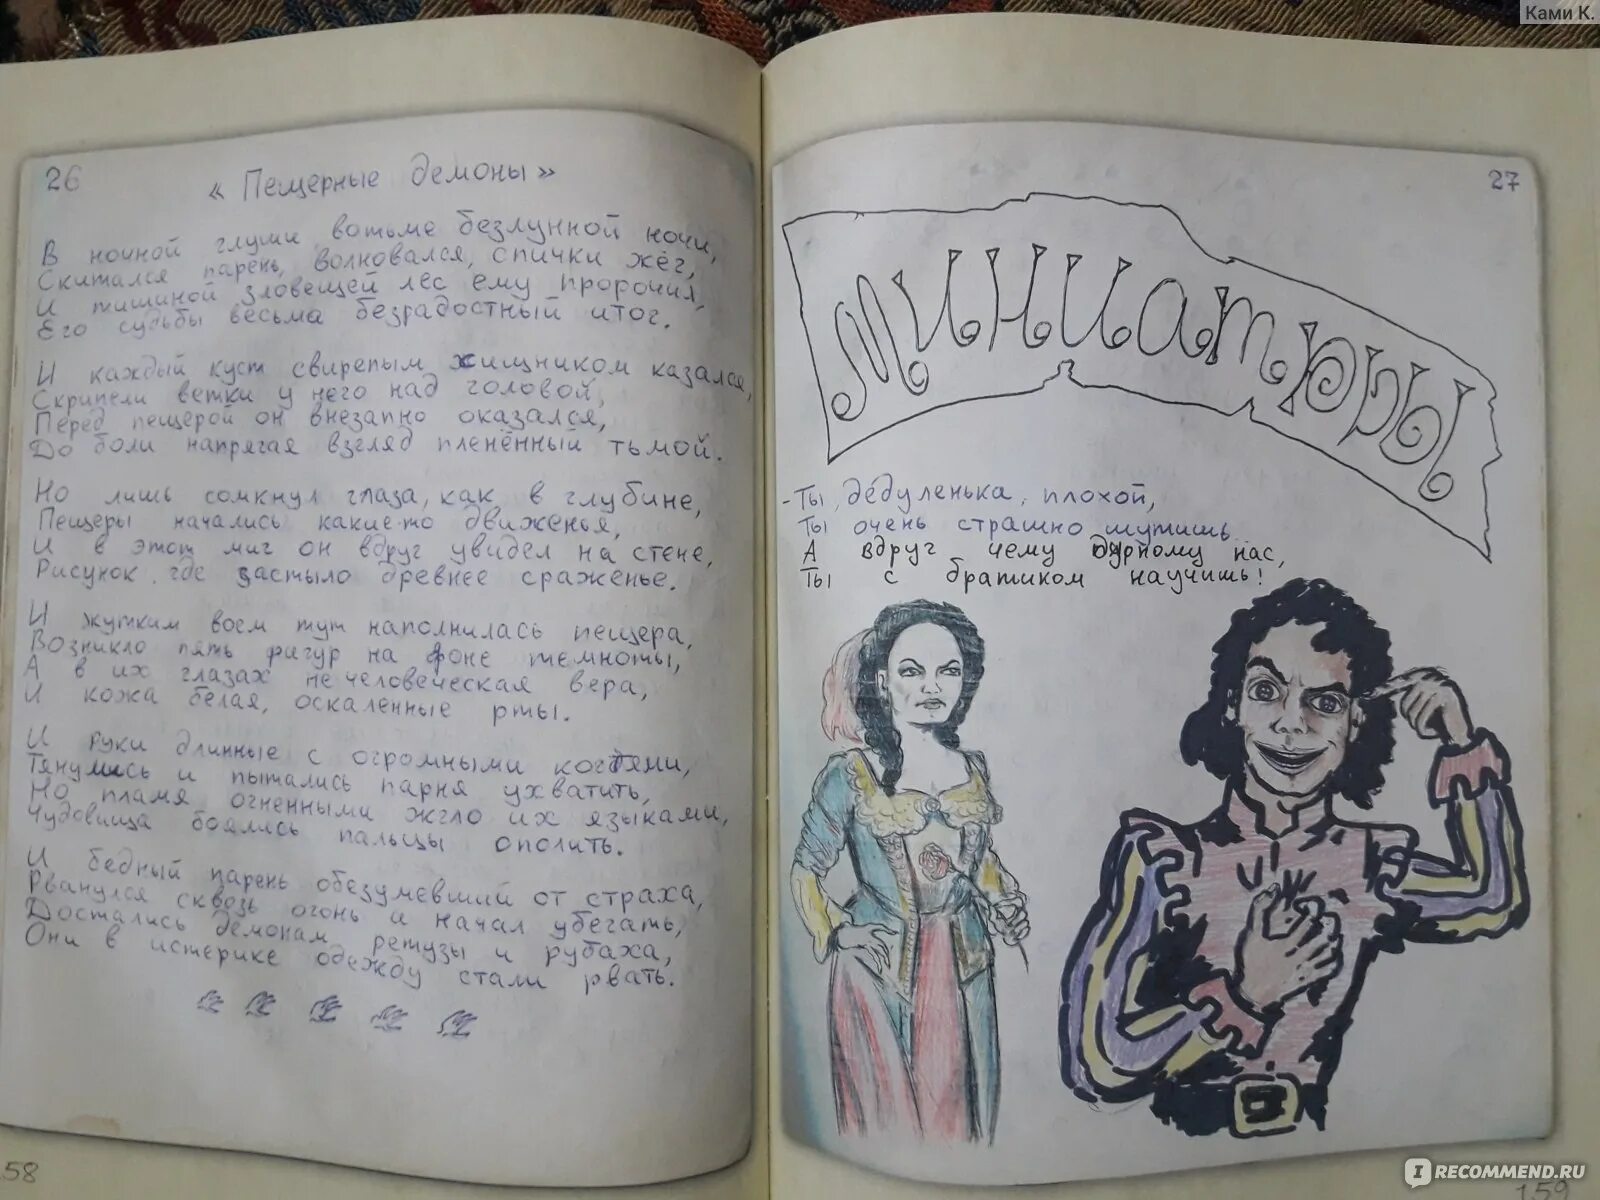 Ками К.
26
« Пещерные демоны »
В ночной глуши, вотьме безлунной ночи,
Скитался парень, волновался, спички жёг,
И тишиной зловещей лес ему пророчил,
Его судьбы весьма безрадостный итог.
И каждый куст свирепым хищником казался,
Скрипели ветки у него над головой,
Перед пещерой он внезапно оказался,
До боли напрягая взгляд пленённый тьмой.
Но лишь сомкнул глаза, как в глубине,
Пещеры начались какие-то движенья,
И в этот миг он вдруг увидел на стене,
Рисунок, где застыло древнее сраженье.
И жутким воем тут наполнилась пещера,
Возникло пять фигур на фоне темноты,
А в их глазах нечеловеческая вера,
И кожа белая, оскаленные рты.
И руки длинные с огромными когтями,
Тянулись и пытались парня ухватить,
Но пламя огненными жгло их языками,
Чудовища боялись пальцы опалить.
И бедный парень обезумевший от страха,
Рванулся сквозь огонь и начал убегать,
Достались демонам ретузы и рубаха,
Они в истерике одежду стали рвать.
58
27
Миниатюры
- Ты, дедуленька, плохой,
Ты очень страшно шутишь
А вдруг чему дурному нас,
Ты с братиком научишь!
159
IRECOMMEND.RU